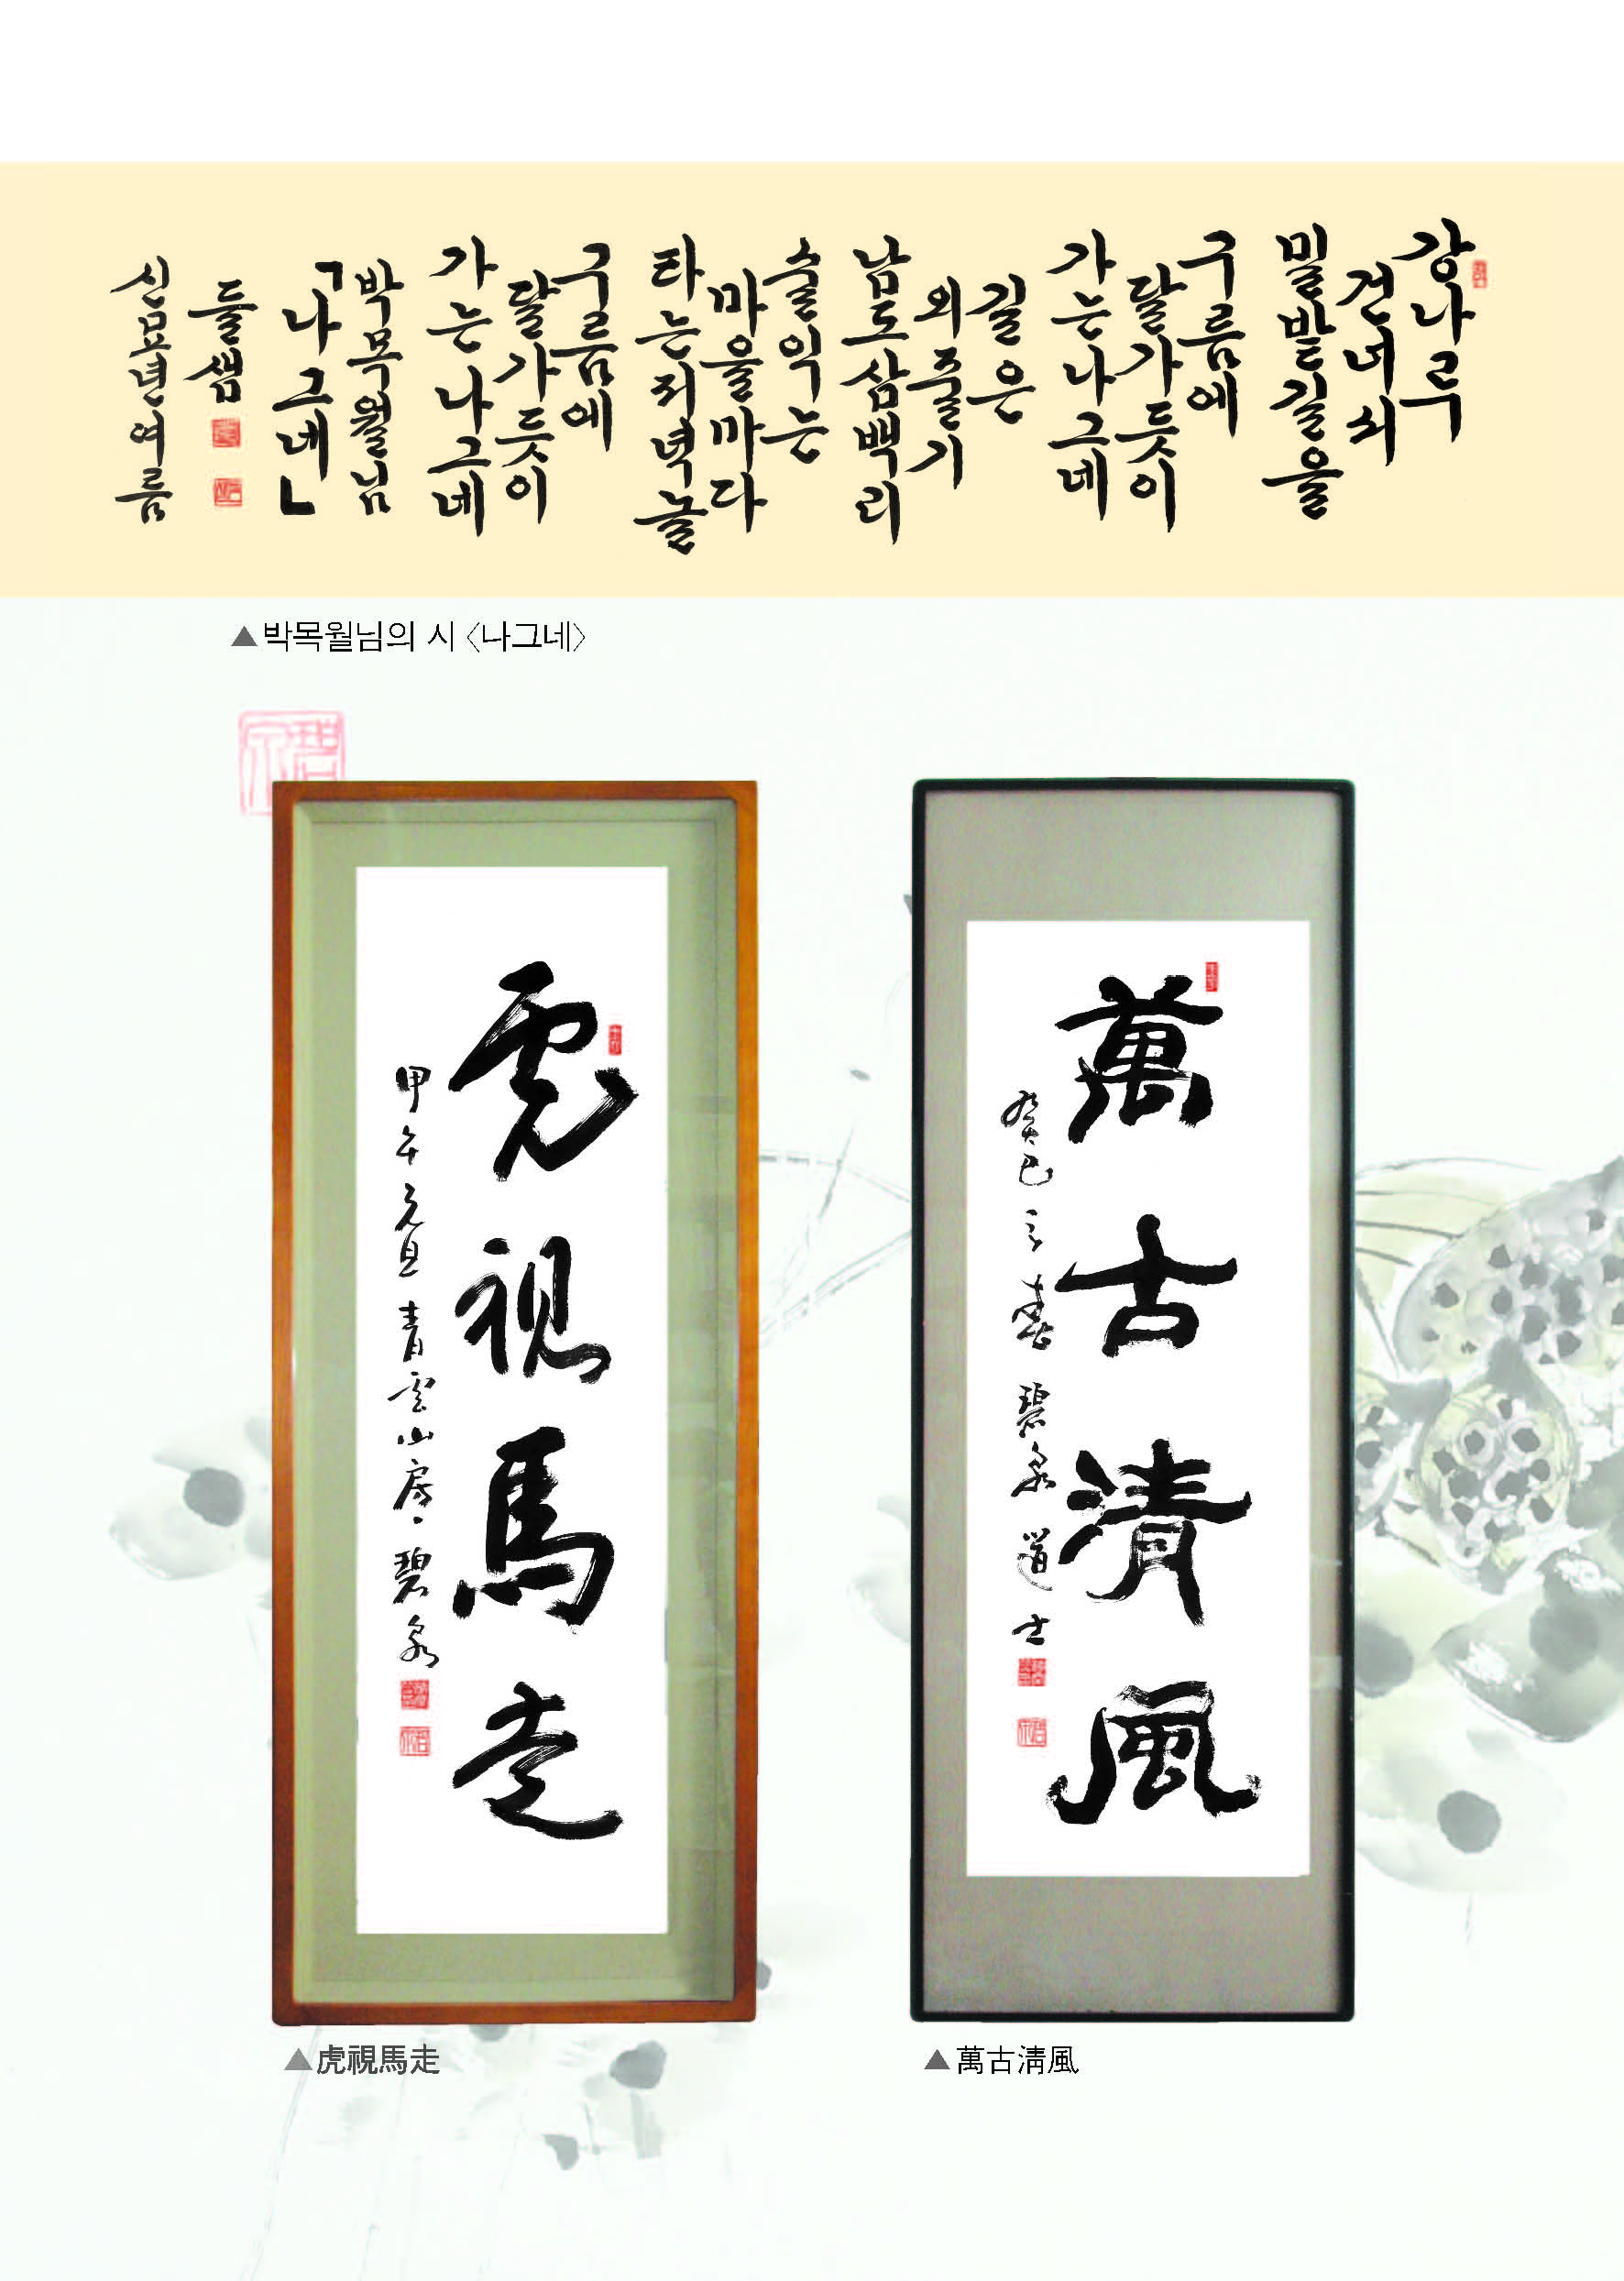 강나루
건너서
밀밭길을
구름에
달가듯이
가는나그네
길은
외줄기
남도삼백리
술익는
마을마다
타는저녁놀
구름에
달가듯이
가는나그네
박목월님
「나그네」
들샘
신묘년여름
▲박목월님의 시 〈나그네〉
虎視馬走
甲午元旦 青雲山房 碧泉
萬古清風
癸巳立春 碧泉道士
▲虎視馬走
▲萬古淸風